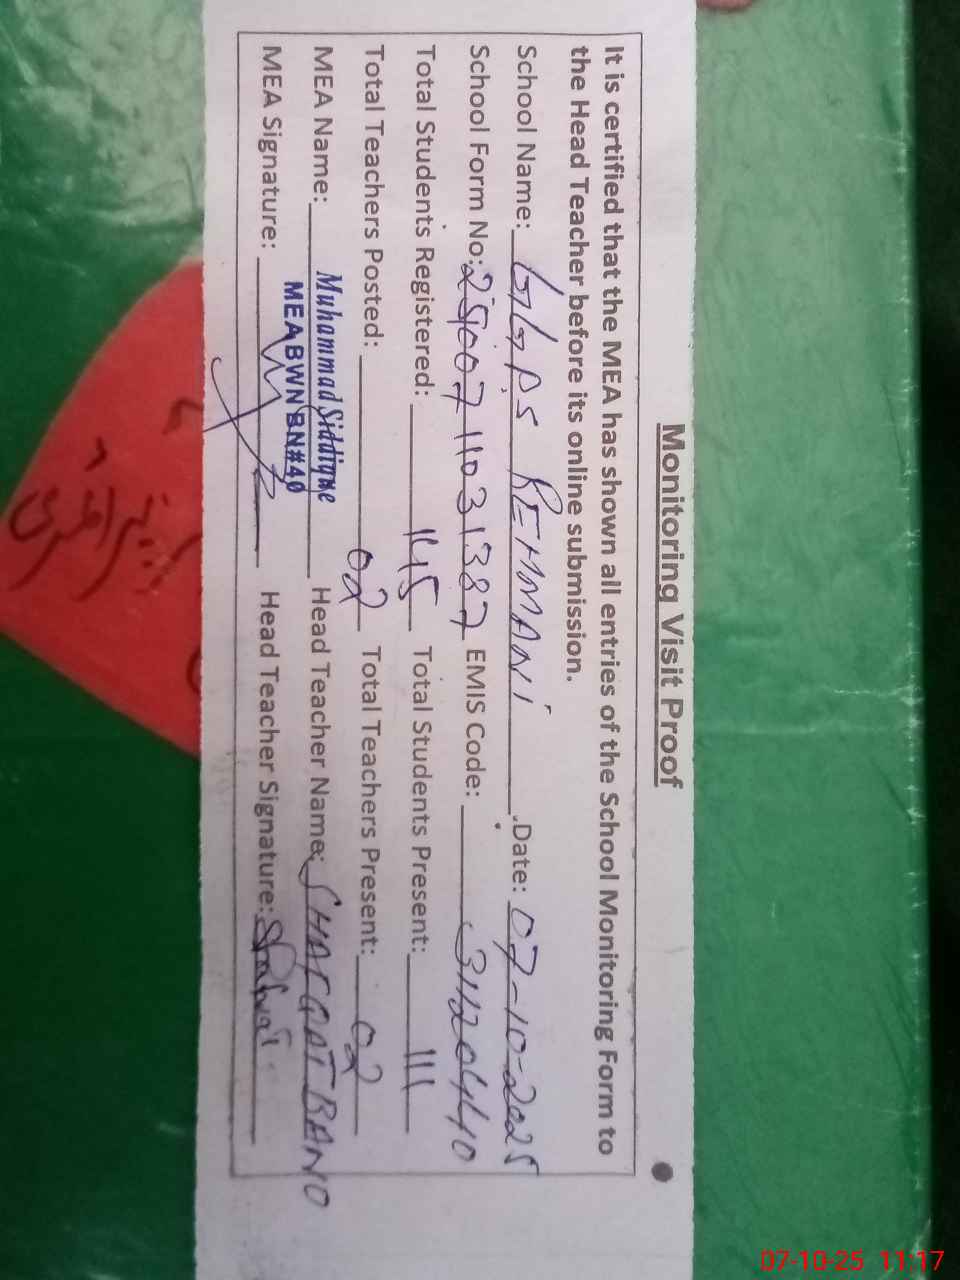 Monitoring Visit Proof
It is certified that the MEA has shown all entries of the School Monitoring Form to
the Head Teacher before its online submission.
School Name: GGPS REHMANI Date: 07-10-2025
School Form No: EMIS Code: 31120440
Total Students Registered: 145 Total Students Present: 111
Total Teachers Posted: 02 Total Teachers Present: 02
MEA Name: Muhammad Siddique Head Teacher Name: SHAFQAT BANO
MEA BWN BN#40
MEA Signature: Head Teacher Signature:
07-10-25 11:17